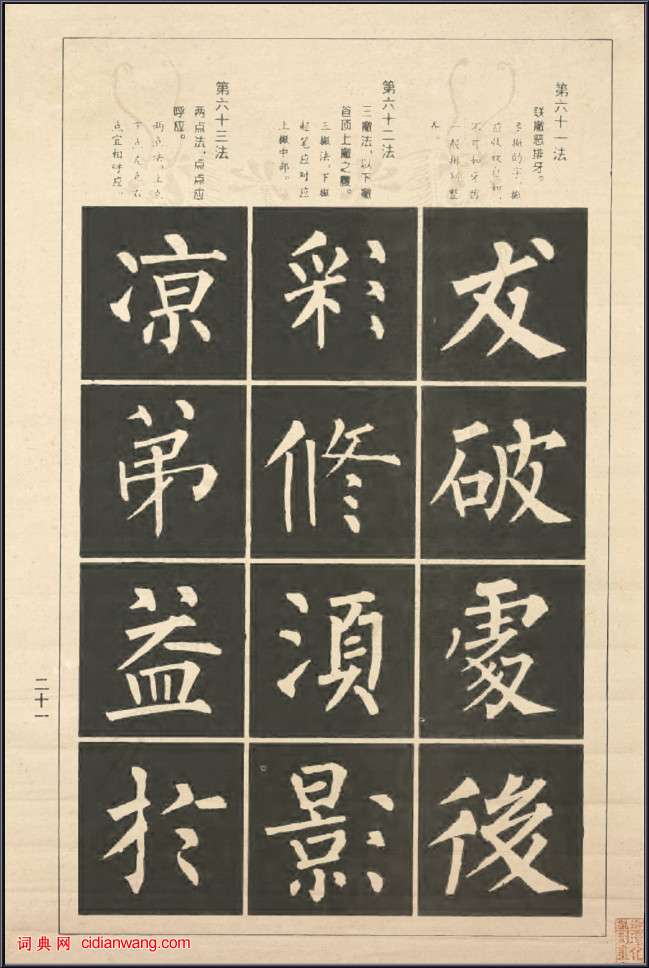 第六十一法
联撇恶排牙。
多撇的字，撇
不可如牙齿
一般排列整
齐。
友
破
處
後
第六十二法
三撇法，以下撇
首顶上撇之腹。
三撇法，下撇
起笔应对应
上撇中部。
彩
修
須
影
第六十三法
两点法，点点应
呼应。
两点法，上点
下点左点右
点宜相呼应。
凉
弟
益
於
二十一
词典网 cidianwang.com